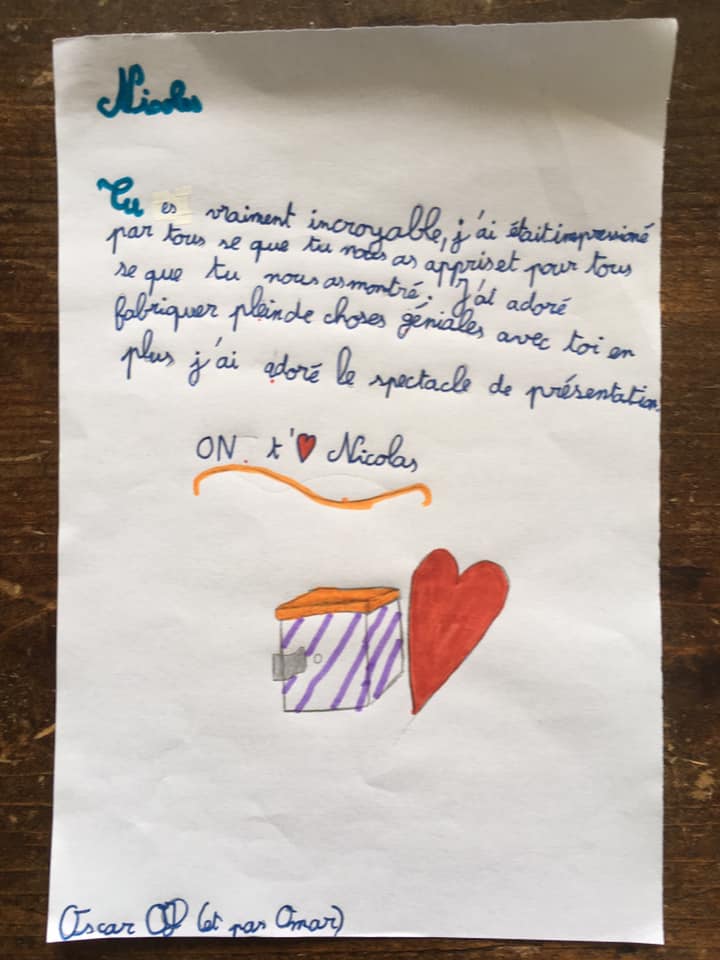 Nicolas
Tu es vraiment incroyable, j'ai était impressioné
par tous se que tu nous as appris et pour tous
se que tu nous as montré; J'ai adoré
fabriquer plein de choses géniales avec toi en
plus j'ai adoré le spectacle de présentation.
ON t'❤ Nicolas
Oscar (et pas Omar)